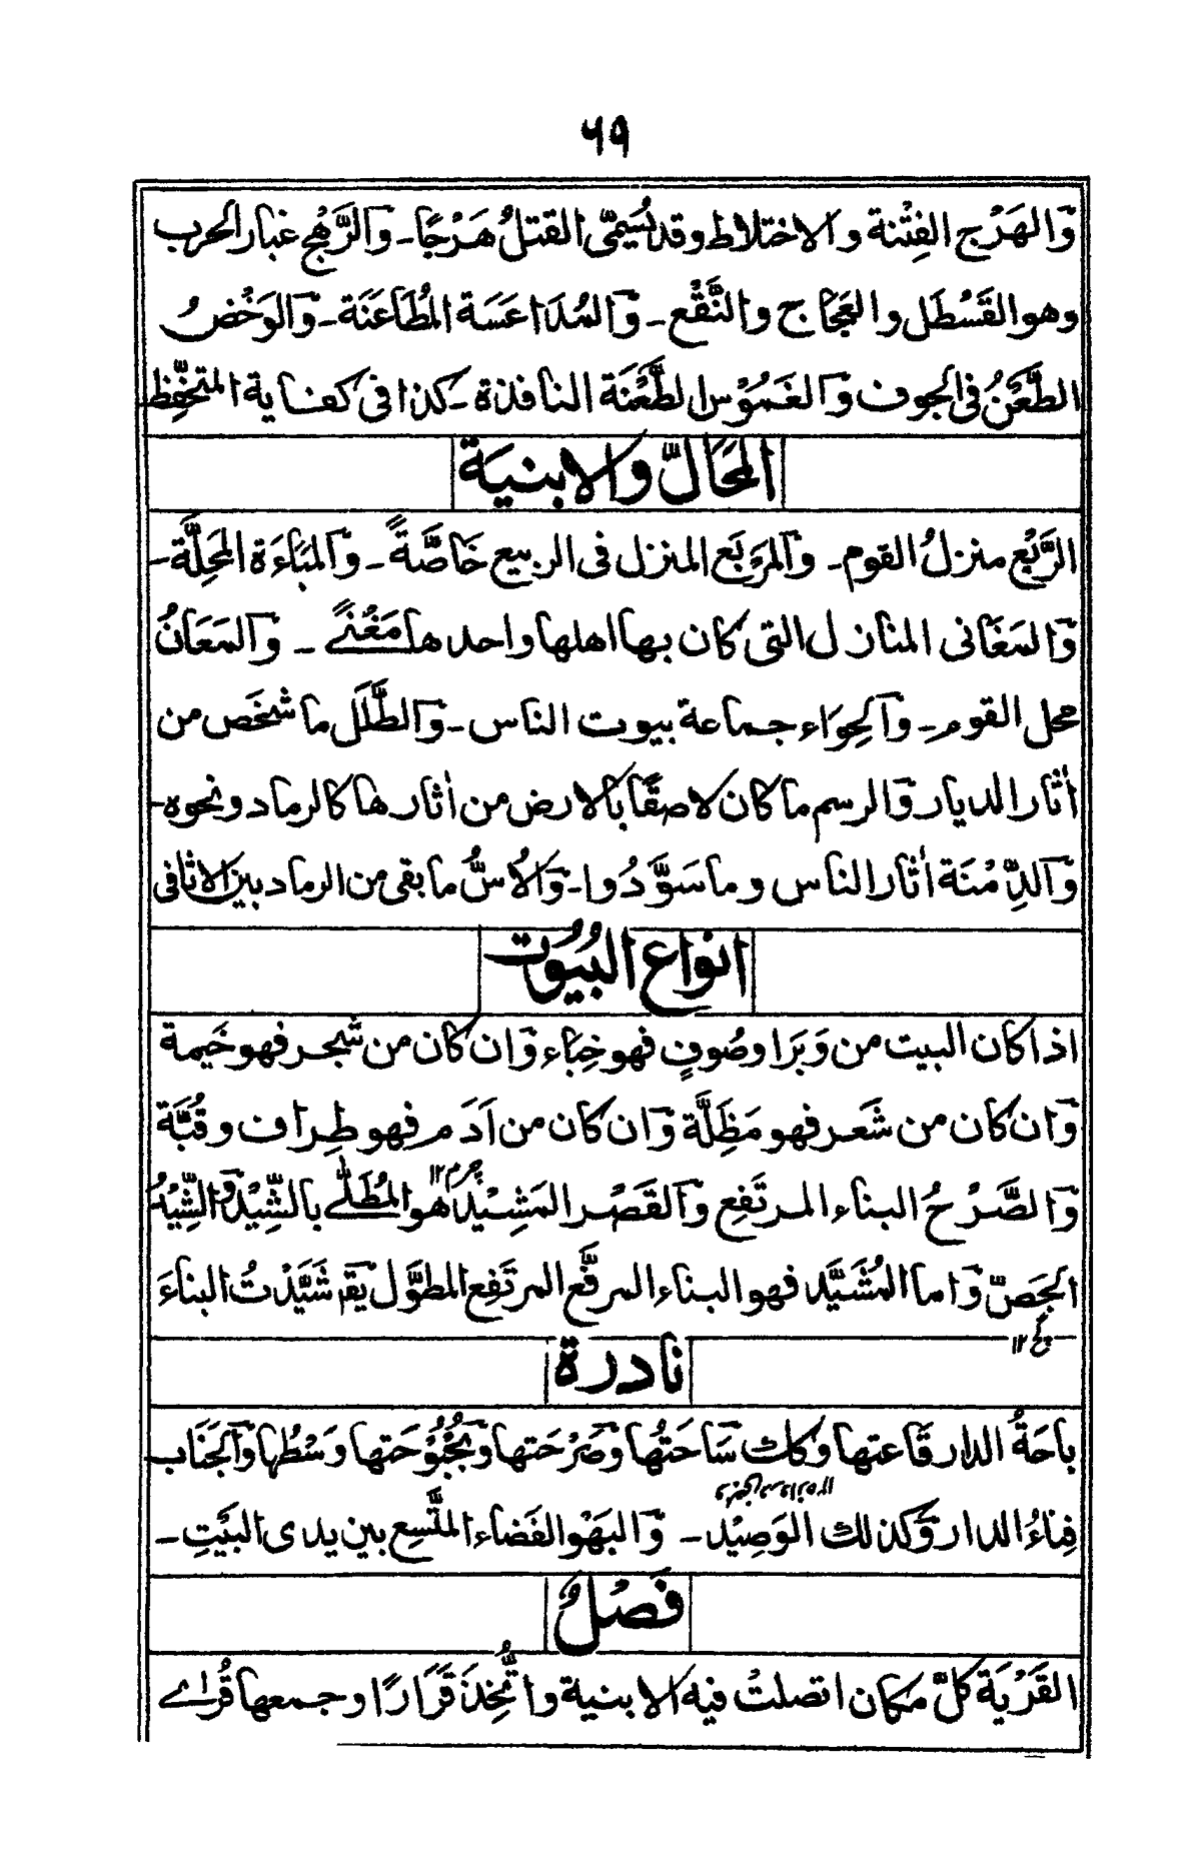 ٦٩
وَالهَرْج الفِتْنة والاختلاط وقد يُسَمّى القتلُ هَرْجًا ـ وَالرَّهْج غبار الحرب
وهو القَسْطَل والعَجَاج والنَّقْع ـ وَالمُدَاعَسَة المُطَاعَنَة ـ وَالوَخْضُ
الطَّعْنُ فى الجوف وَالغَمُوْس الطَّعْنَة النافذة ـ كذا فى كفاية المتحفّظ
المَحَالّ والابنية
الرَّبْع منزلُ القوم ـ وَالمَرْبَع المنزل فى الربيع خَاصَّةً ـ وَالمَبَاءَة المَحِلَّة ـ
وَالمَغَانى المنازل التى كان بها اهلها واحدها مَغْنًى ـ وَالمَعَانُ
محل القوم ـ وَالحِوَاء جماعة بيوت الناس ـ وَالطَّلَل ما شخَص من
أثار الديار وَالرسم ما كان لاصقًا بالارض من أثارها كالرماد ونحوه ـ
وَالدِّمْنَة أثار الناس وما سَوَّدُوا ـ وَالأُسُّ ما بقى من الرماد بين الاثافى
انواع البُيُوت
اذا كان البيت من وَبَر او صُوفٍ فهو خِبَاء وَان كان من شجر فهو خَيمة
وَان كان من شَعَر فهو مَظِلَّة وَان كان من اَدَم فهو طِراف وقُبَّة
چرم ١٢
وَالصَّرْحُ البناء المرتَفِع وَالقَصْر المَشِيْد هو المُطَلّٰے بالشِّيْد وَالشِّيْدُ
الجَصّ وَاما المُشَيَّد فهو البناء المرفَّع المرتَفِع المطوَّل يقَ شَيَّدْتُ البناءَ
گچ ١٢
نادرة
باحَةُ الدار قَاعتها وكذلك سَاحَتُها وصَرْحَتها وَبُحْبُوْحَتها وَسْطُها وَالجَنَاب
فِناءُ الدار وَكذلك الوَصِيْد ـ وَالبَهْو الفَضاء المتَّسِع بين يدى البَيْتِ ـ
فَصْلٌ
القَرْيَة كلُّ مكان اتصلتْ فيه الابنية واتُّخِذَ قَرَارًا وجمعها قُرٰے